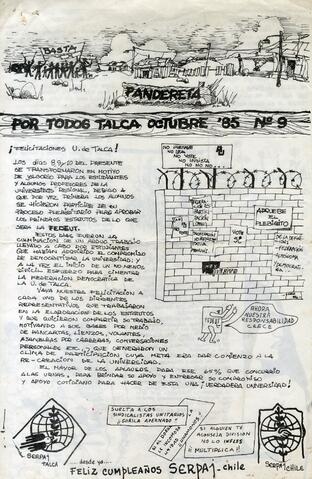 BASTA
PANDERETA
POR TODOS TALCA OCTUBRE '85 Nº 9
¡FELICITACIONES U. de TALCA!
LOS días 8,9,10 DEL PRESENTE
SE TRANSFORMARON EN MOTIVO
DE REGOCIJO PARA LOS ESTUDIANTES
Y ALGUNOS PROFESORES DE LA
UNIVERSIDAD REGIONAL, DEBIDO A
QUE POR VEZ PRIMERA LOS ALUMNOS
SE HICIERON PARTICIPE DE SU
PROCESO PLEBISCITARIO PARA APROBAR
LOS PRIMEROS ESTATUTOS DE LO QUE
SERA LA FEDEUT.
ESTOS DÍAS FUERON LA
CULMINACION DE UN ARDUO TRABAJO
LLEVADO A CABO POR ESTUDIANTES
QUE HABÍAN ADQUIRIDO EL COMPROMISO
DE DEMOCRATIZAR LA UNIVERSIDAD; Y
A LA VEZ EL INICIO DE UN NO MENOS
DIFICIL ESFUERZO PARA CIMENTAR
LA FEDERACION DEMOCRATICA DE
LA U. DE TALCA.
VAYA NUESTRA FELICITACION A
CADA UNO DE LOS DIRIGENTES
REPRESENTATIVOS QUE TRABAJARON
EN LA ELABORACION DE LOS ESTATUTOS
Y SUS QUISIERON COMPARTIR SU TRABAJO,
MOTIVANDO A SUS BASES POR MEDIO
DE PANCARTAS, LIENZOS, VOLANTES,
ASAMBLEAS POR CARRERAS, CONVERSACIONES
PERSONALES ETC., Y QUE GENERARON UN
CLIMA DE PARTICIPACION CUYA META ERA DAR COMIENZO A LA
RE-CREACION DE LA UNIVERSIDAD.
EL MAYOR DE LOS APLAUSOS, PARA ESE 65% QUE CONCURRIO
A LAS URNAS, PARA BRINDAR SU APOYO Y ENTREGAR SU COMPROMISO
Y APOYO COTIDIANO PARA HACER DE ESTA UNA ¡VERDADERA UNIVERSIDAD!
APRUEBE
EL
PLEBISCITO
VOTE
SI
AHORA
NUESTRA
RESPONSABILIDAD
CRECE
SUELTA A LOS
SINDICALISTAS UNITARIOS
¡GORILA APERNADO!
SI ALGUIEN TE
ACONSEJA DIVISION
NO LO INFLES
¡¡MULTIPLICA!!
SERPAJ
TALCA
SERPAJ-CHILE
... desde ya...
FELIZ CUMPLEAÑOS SERPAJ-chile